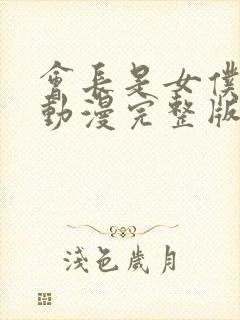 會長是女僕
動漫完整版
淺色歲月